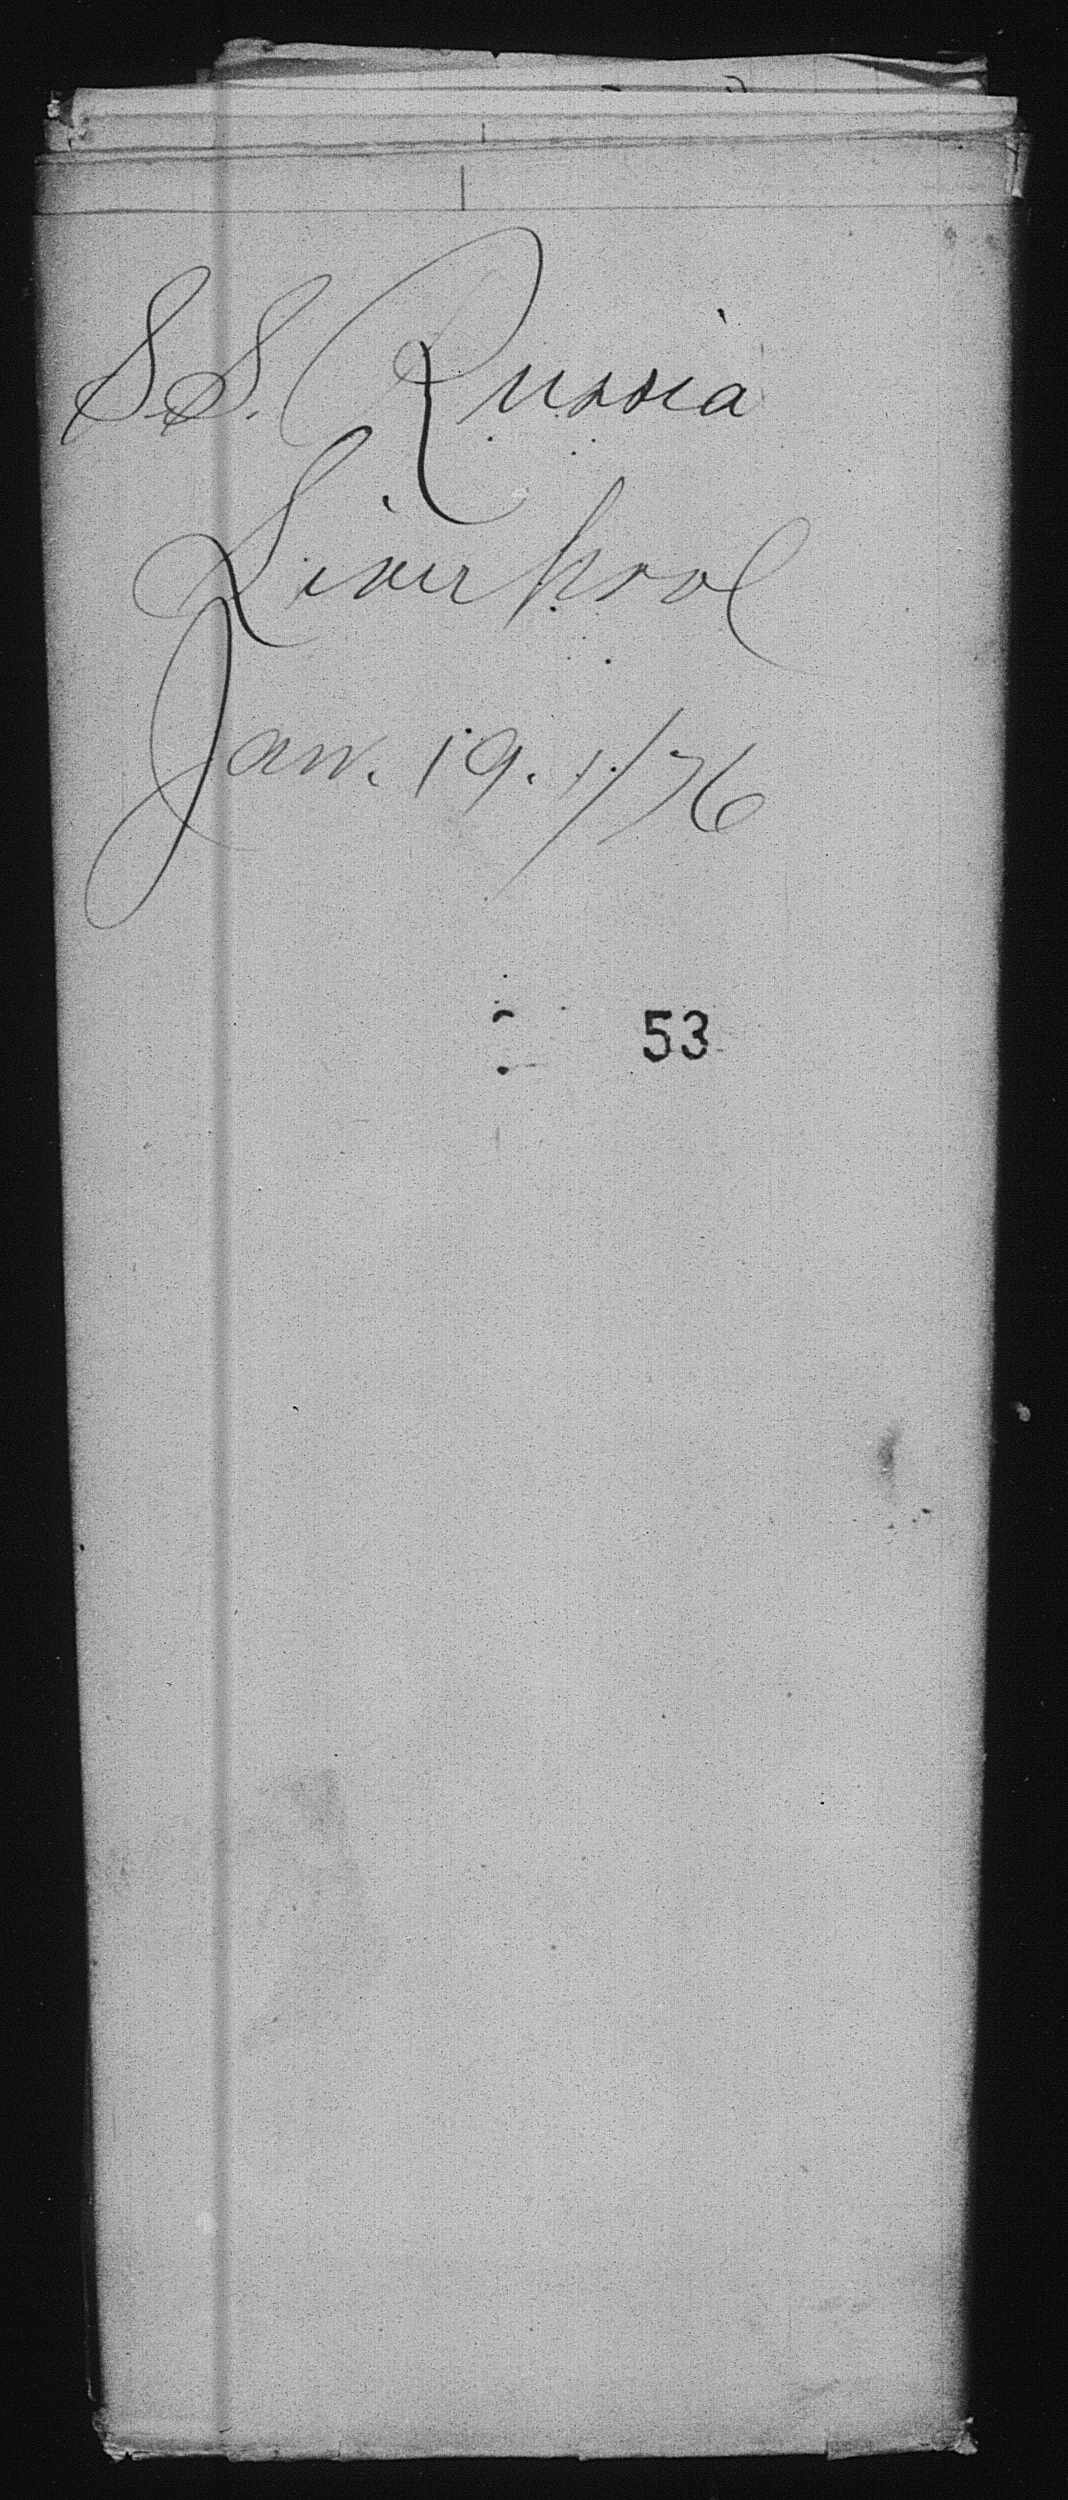 S.S. Russia
Liverpool
Jan. 19. 1/76
53